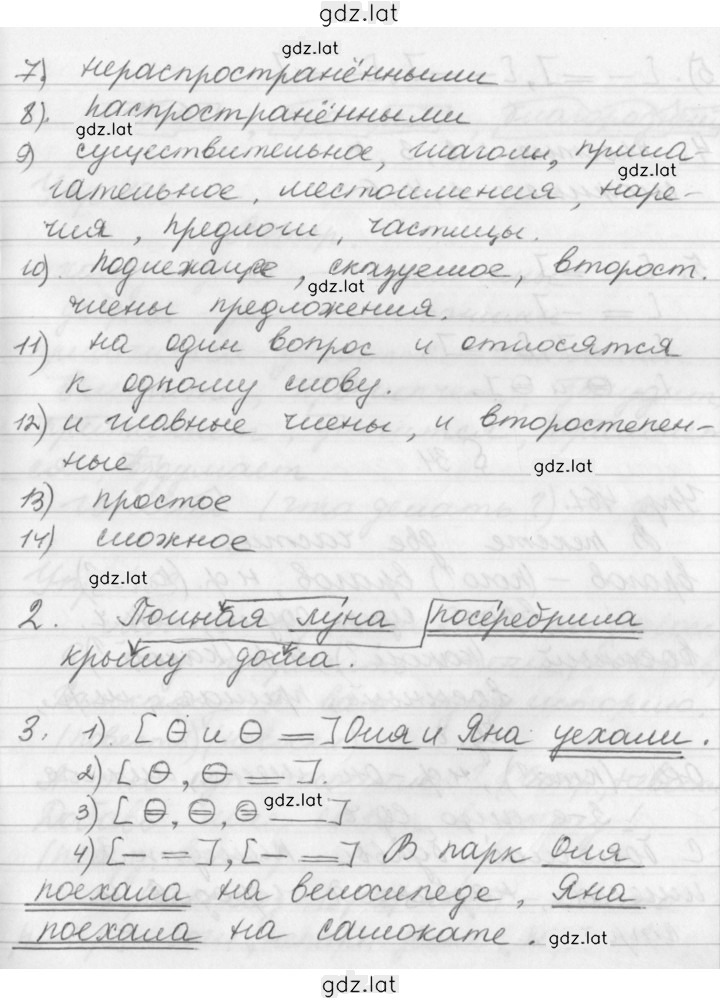 gdz.lat
gdz.lat
7) нераспространёнными
8). Распространёнными
gdz.lat
9) существительное, глаголы, прила-
gdz.lat
гательное, местоимения, наре-
чия, предлоги, частицы.
10). Подлежащее, сказуемое, второст.
gdz.lat
члены предложения.
11) на один вопрос и относятся
к одному слову.
12) и главные члены, и второстепен-
ные
gdz.lat
13) простое
14) сложное
gdz.lat
2. Полная луна посеребрила
крышу дома.
3. 1). [⊖ и ⊖ =] Оля и Яна уехали.
2) [⊖, ⊖ =].
3) [⊖, ⊖, ⊖ —]
gdz.lat
4) [– =], [– =] В парк Оля
поехала на велосипеде, Яна
поехала на самокате.
gdz.lat
gdz.lat